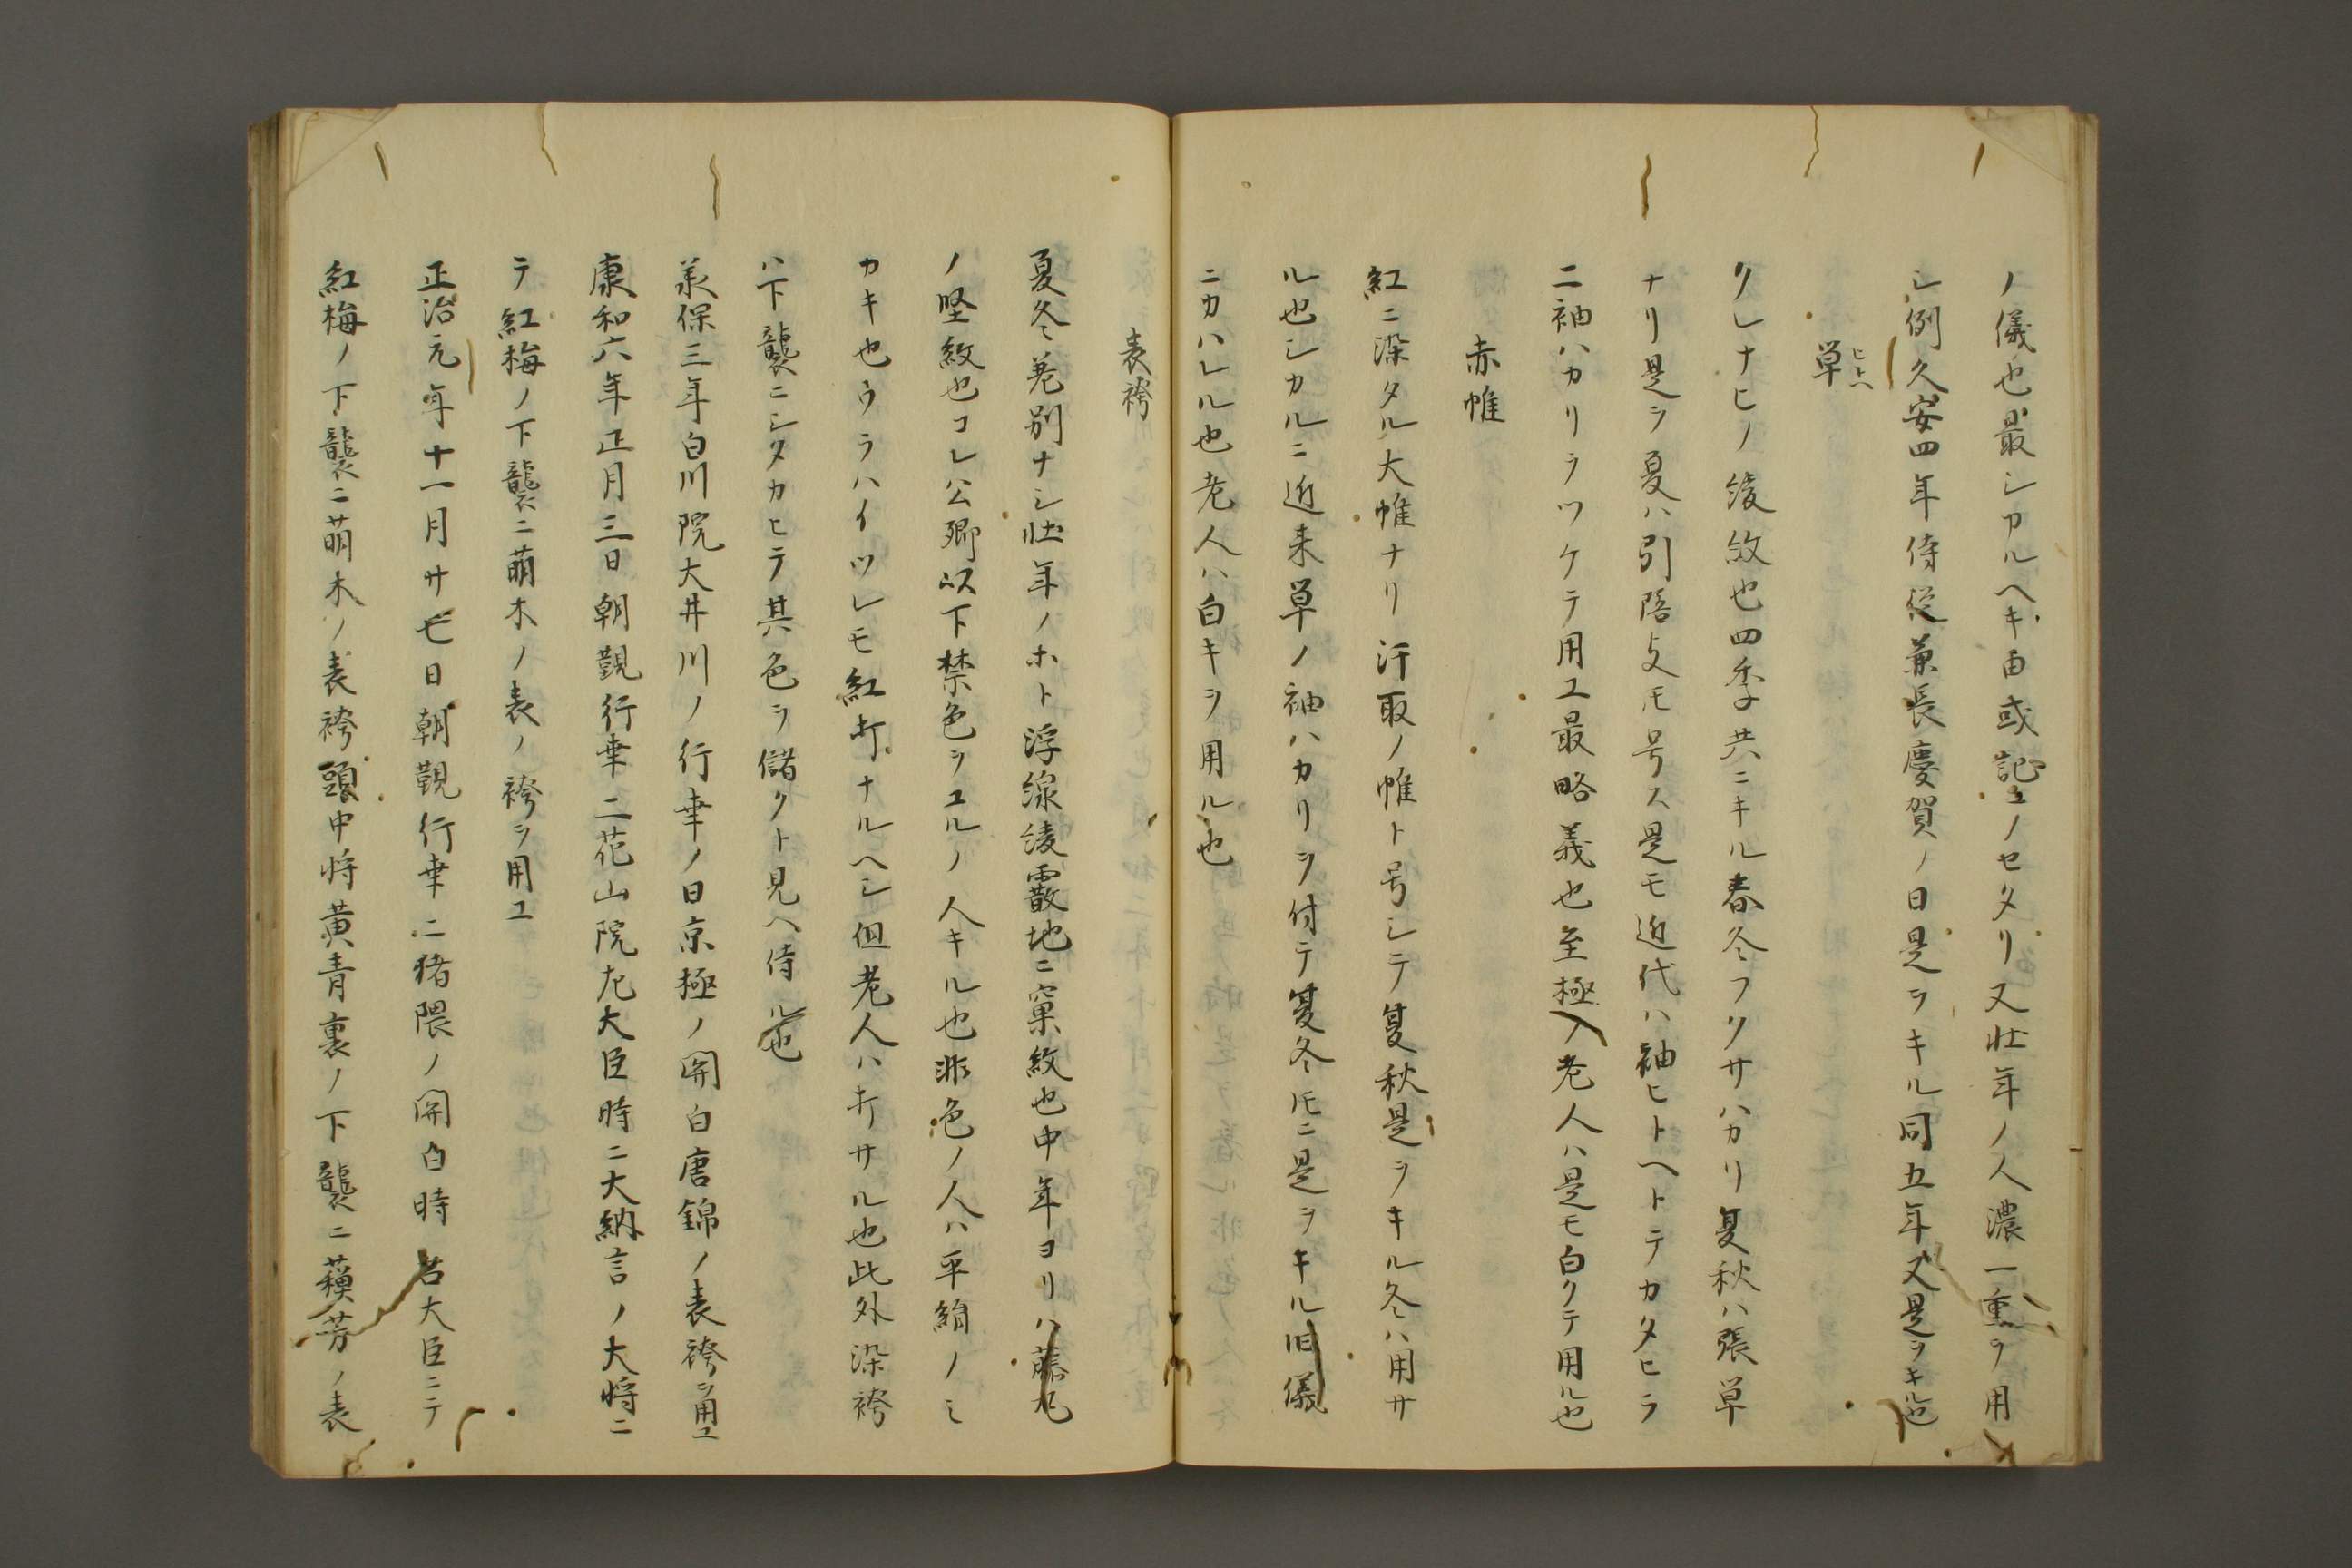 ノ儀也最シカルヘキ由或記ニノセタリ又壮年ノ人濃一重ヲ用
シ例久安四年侍従兼長慶賀ノ日是ヲキル同五年又是ヲキル也
単ヒトヘ
クレナヒノ綾紋也四季共ニキル春冬フクサハカリ夏秋ハ張単
ナリ是ヲ夏ハ引陪支モ号ス是モ近代ハ袖ヒトヘトテカタヒラ
ニ袖ハカリヲツケテ用エ最略義也至極ノ老人ハ是モ白クテ用ル也
赤帷
紅ニ染タル大帷ナリ汗取ノ帷ト号シテ夏秋是ヲキル冬ハ用サ
ル也シカルニ近来単ノ袖ハカリヲ付テ夏冬𪜈ニ是ヲキル旧儀
ニカハレル也老人ハ白キヲ用ル也
表袴
夏冬差別ナシ壮年ノホト浮線綾霰地ニ窠紋也中年ヨリハ藤丸
ノ堅紋也コレハ公卿以下禁色ヲユルノ人キル也非色ノ人ハ平絹ノミ
カキ也ウラハイツレモ紅打ナルヘシ但老人ハ打サル也此外染袴
ハ下襲ニシタカヒテ其色ヲ儲クト見ヘ侍ル也
承保三年白川院大井川ノ行幸ノ日京極ノ関白唐錦ノ表袴ヲ用エ
康和六年正月三日朝覲行幸ニ花山院左大臣時ニ大納言ノ大将ニ
テ紅梅ノ下襲ニ萌木ノ表ノ袴ヲ用エ
正治元年十一月廿七日朝覲行幸ニ猪隈ノ関白時右大臣ニテ
紅梅ノ下襲ニ萌木ノ表袴頭中将黄青裏ノ下襲ニ蘓芳ノ表